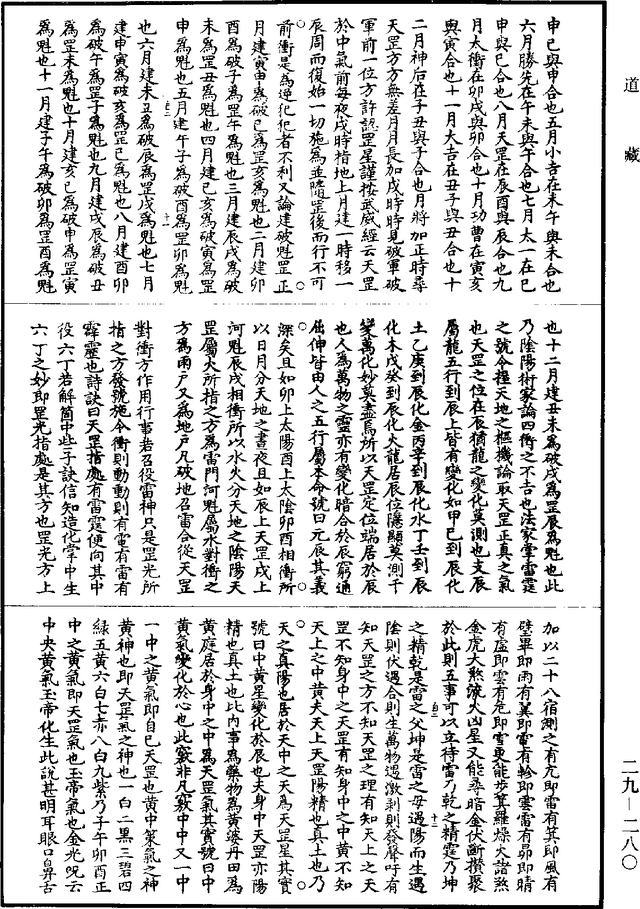 道藏
申巳與申合也五月小吉在未午與未合也
六月勝先在午未與午合也七月太一在巳
申與巳合也八月天罡在辰酉與辰合也九
月太衝在卯戌與卯合也十月功曹在寅亥
與寅合也十一月大吉在丑子與丑合也十
二月神后在子丑與子合也月將加正時尋
天罡方方無差月月長加戌時時見破軍破
軍前一位方許認罡星謹按武威經云天罡
於中氣前每夜戌時指地上月建一時移一
辰周而復始一切施為並隨罡後而行不可
前衝是為逆犯犯者不利又論建破魁罡正
月建寅申為破巳為罡亥為魁也二月建卯
酉為破子為罡午為魁也三月建辰戌為破
未為罡丑為魁也四月建巳亥為破寅為罡
申為魁也五月建午子為破酉為罡卯為魁
也六月建未丑為破辰為罡戌為魁也七月
建申寅為破亥為罡巳為魁也八月建酉卯
為破午為罡子為魁也九月建戌辰為破丑
為罡未為魁也十月建亥巳為破申為罡寅
為魁也十一月建子午為破卯為罡酉為魁
也十二月建丑未為破戌為罡辰為魁也此
乃陰陽術家論四衝之不吉也法家掌雷霆
之號令握天地之樞機論取天罡正真之氣
也天罡之位在辰猶龍之變化莫測也支辰
屬龍五行到辰上皆有變化如甲巳到辰化
土乙庚到辰化金丙辛到辰化水丁壬到辰
化木戊癸到辰化火龍居辰位隱顯莫測千
變萬化妙莫盡焉所以天罡定位端居於辰
也人為萬物之靈亦有變化暗合於辰窮通
屈伸皆由人之五行屬本命號曰元辰其義
深矣且如卯上太陽酉上太陰卯酉相衝所
以日月分天地之晝夜且如辰上天罡戌上
河魁辰戌相衝所以水火分天地之陰陽天
罡屬火所指之方為雷門河魁屬水對衝之
方為雨戶又為地戶凡破地召雷合從天罡
對衝方作用行事若召役雷神只是罡光所
指之方發號施令衝則動動則有電有雷有
霹靂也詩訣曰天罡指處有雷霆便向其中
役六丁若解箇中些子訣信知造化掌中生
六丁之妙即罡光指處是其方也罡光方上
加以二十八宿測之有亢即雷有箕即風有
壁畢即雨有翼即雷有軫即雲雷有昴即晴
有虛即雲有危即雲更能步箕躔燥火諳煞
金虎大煞流火凶星又能尋暗金伏斷攢聚
於此則五事可以立待雷乃乾之精霆乃坤
之精乾是雷之父坤是雷之母遇陽而生遇
陰則伏遇合則生萬物遇激剥則發聲呼有
知天罡之方不知天罡之理有知天上之天
罡不知身中之天罡有知身中之中黃不知
天上之中黃夫天上天罡陽精也真土也乃
天之真陽也居於天中之天為天罡星其實
號曰中黃星變化於辰也夫身中天罡亦陽
精也真土也比內事為藥物為黃婆丹田為
黃庭居於身中之中為天罡氣其實號曰中
黃氣變化於心也此竅非凡竅中中又一中
一中之黃氣即自巳天罡也黃中策氣之神
黃神也即天罡氣之神也一白二黑三碧四
綠五黃六白七赤八白九紫乃子午卯酉正
中之黃氣即天罡氣也玉帝氣也金光呪云
中央黃氣玉帝化生此說甚明耳眼口鼻舌
二九—二八〇